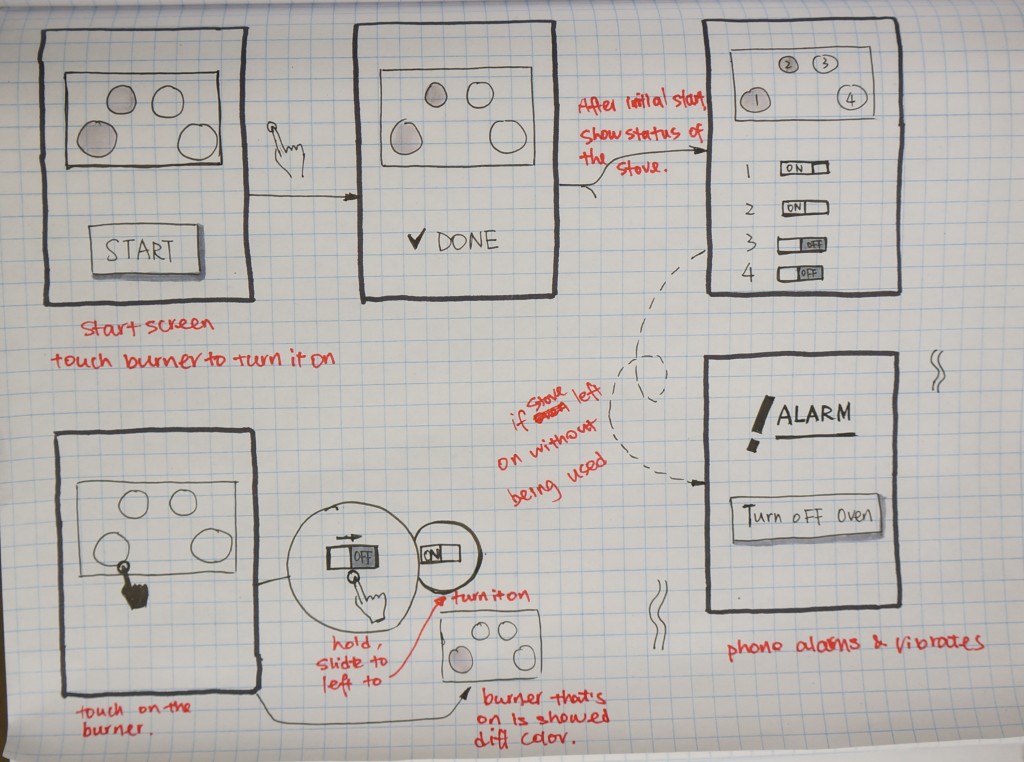 START
start screen
touch burner to turn it on
✓ DONE
After initial start,
show status of
the
stove.
2 3
1 4
1 ON
2 ON
3 OFF
4 OFF
if stove left
on without
being used
! ALARM
Turn off oven
phone alarms & vibrates
touch on the
burner.
OFF
ON
hold,
slide to
left to
turn it on
burner that's
on is showed
diff color.